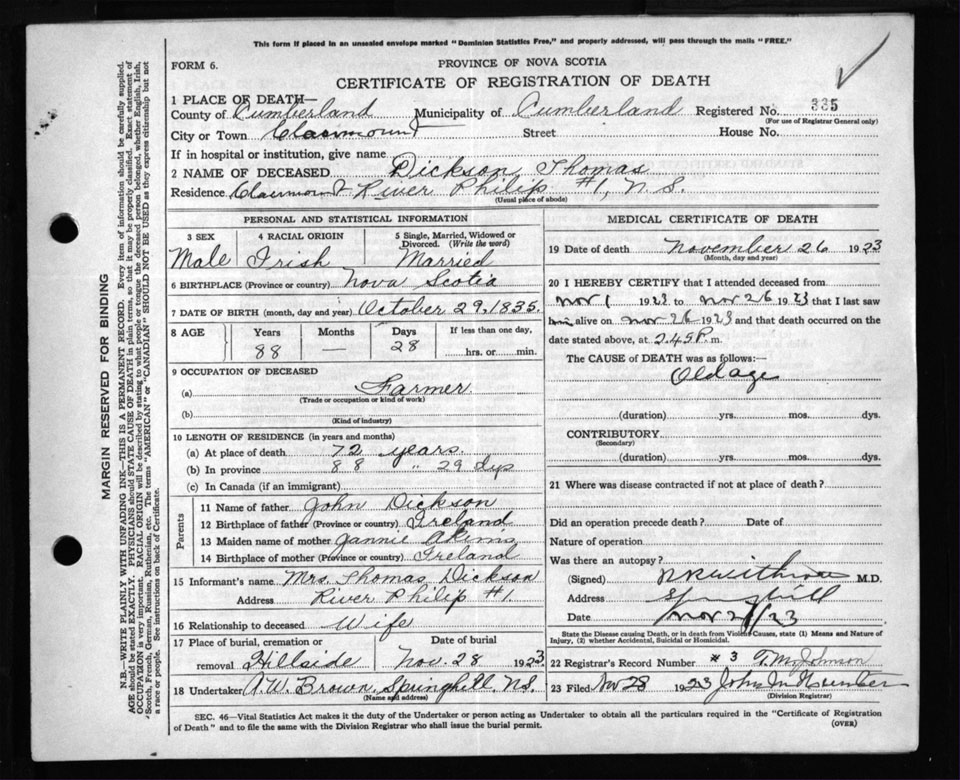 This form if placed in an unsealed envelope marked "Dominion Statistics Free," and properly addressed, will pass through the mails "FREE."
FORM 6.
PROVINCE OF NOVA SCOTIA
CERTIFICATE OF REGISTRATION OF DEATH
1 PLACE OF DEATH—
County of Cumberland Municipality of Cumberland Registered No. 335
(For use of Registrar General only)
City or Town Claremount Street House No.
If in hospital or institution, give name
2 NAME OF DECEASED Dickson, Thomas
Residence Claremount River Philip #1, N.S.
(Usual place of abode)
PERSONAL AND STATISTICAL INFORMATION
3 SEX 4 RACIAL ORIGIN 5 Single, Married, Widowed or Divorced. (Write the word)
Male Irish Married
6 BIRTHPLACE (Province or country) Nova Scotia
7 DATE OF BIRTH (month, day and year) October 29, 1835.
8 AGE Years Months Days If less than one day,
88 — 28 hrs. or min.
9 OCCUPATION OF DECEASED
(a) Farmer
(Trade or occupation or kind of work)
(b)
(Kind of industry)
10 LENGTH OF RESIDENCE (in years and months)
(a) At place of death 72 years.
(b) In province 88 " 29 dys
(c) In Canada (if an immigrant)
Parents
11 Name of father John Dickson
12 Birthplace of father (Province or country) Ireland
13 Maiden name of mother Jannie Akims
14 Birthplace of mother (Province or country) Ireland
15 Informant's name Mrs. Thomas Dickson
Address River Philip #1.
16 Relationship to deceased Wife
17 Place of burial, cremation or removal Hillside Date of burial Nov. 28 1923
18 Undertaker A.W. Brown, Springhill, N.S.
(Name and address)
MEDICAL CERTIFICATE OF DEATH
19 Date of death November 26 1923
(Month, day and year)
20 I HEREBY CERTIFY that I attended deceased from
Nov 1 1923 to Nov 26 1923 that I last saw
him alive on Nov 26 1923 and that death occurred on the
date stated above, at 2.45 P. m.
The CAUSE of DEATH was as follows:—
Old age
(duration) yrs. mos. dys.
CONTRIBUTORY
(Secondary)
(duration) yrs. mos. dys.
21 Where was disease contracted if not at place of death?
Did an operation precede death? Date of
Nature of operation
Was there an autopsy?
(Signed) M.D.
Address Springhill
Date Nov 23
State the Disease causing Death, or in death from Violent Causes, state (1) Means and Nature of Injury, (2) whether Accidental, Suicidal or Homicidal.
22 Registrar's Record Number # 3 T. M. Johnson
23 Filed Nov 28 1923 John M Hunter
(Division Registrar)
SEC. 46—Vital Statistics Act makes it the duty of the Undertaker or person acting as Undertaker to obtain all the particulars required in the "Certificate of Registration
of Death" and to file the same with the Division Registrar who shall issue the burial permit. (OVER)
MARGIN RESERVED FOR BINDING
N.B.—WRITE PLAINLY WITH UNFADING INK—THIS IS A PERMANENT RECORD. Every item of information should be carefully supplied.
AGE should be stated EXACTLY. PHYSICIANS should STATE CAUSE OF DEATH in plain terms, so that it may be properly classified. Exact statement of
OCCUPATION is very important. RACIAL ORIGIN will be described by stating to what people or tongue the deceased person belonged, whether English, Irish,
Scotch, French, German, Russian, Ruthenian, etc. The terms "AMERICAN" or "CANADIAN" SHOULD NOT BE USED as they express citizenship but not
a race or people. See instructions on back of Certificate.